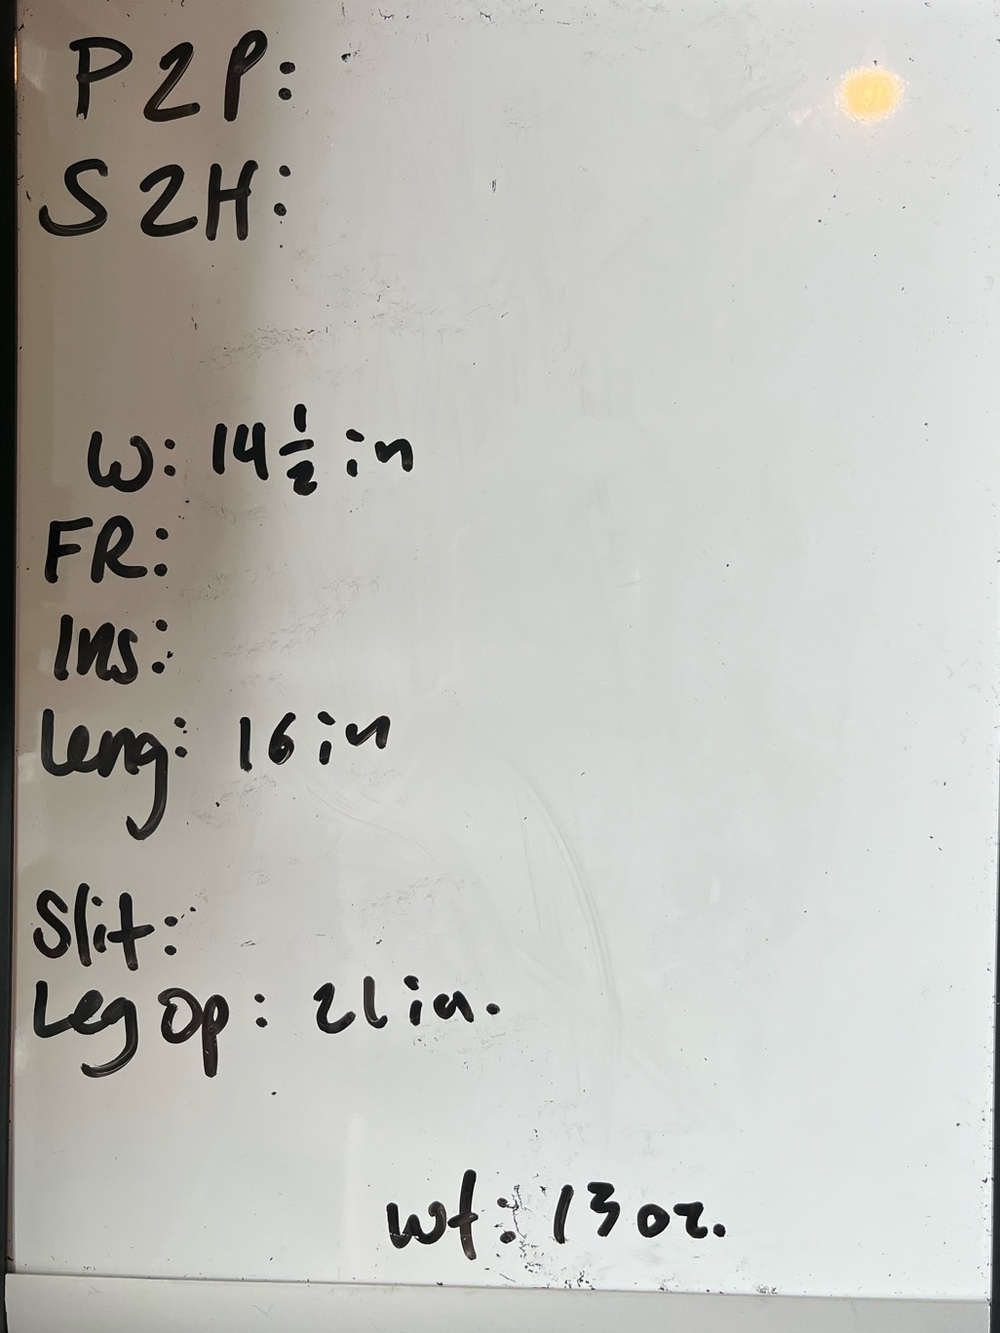 P2P:
S2H:
W: 14 1/2 in
FR:
Ins:
Leng: 16 in
Slit:
Leg Op: 21 in.
wt: 13 oz.